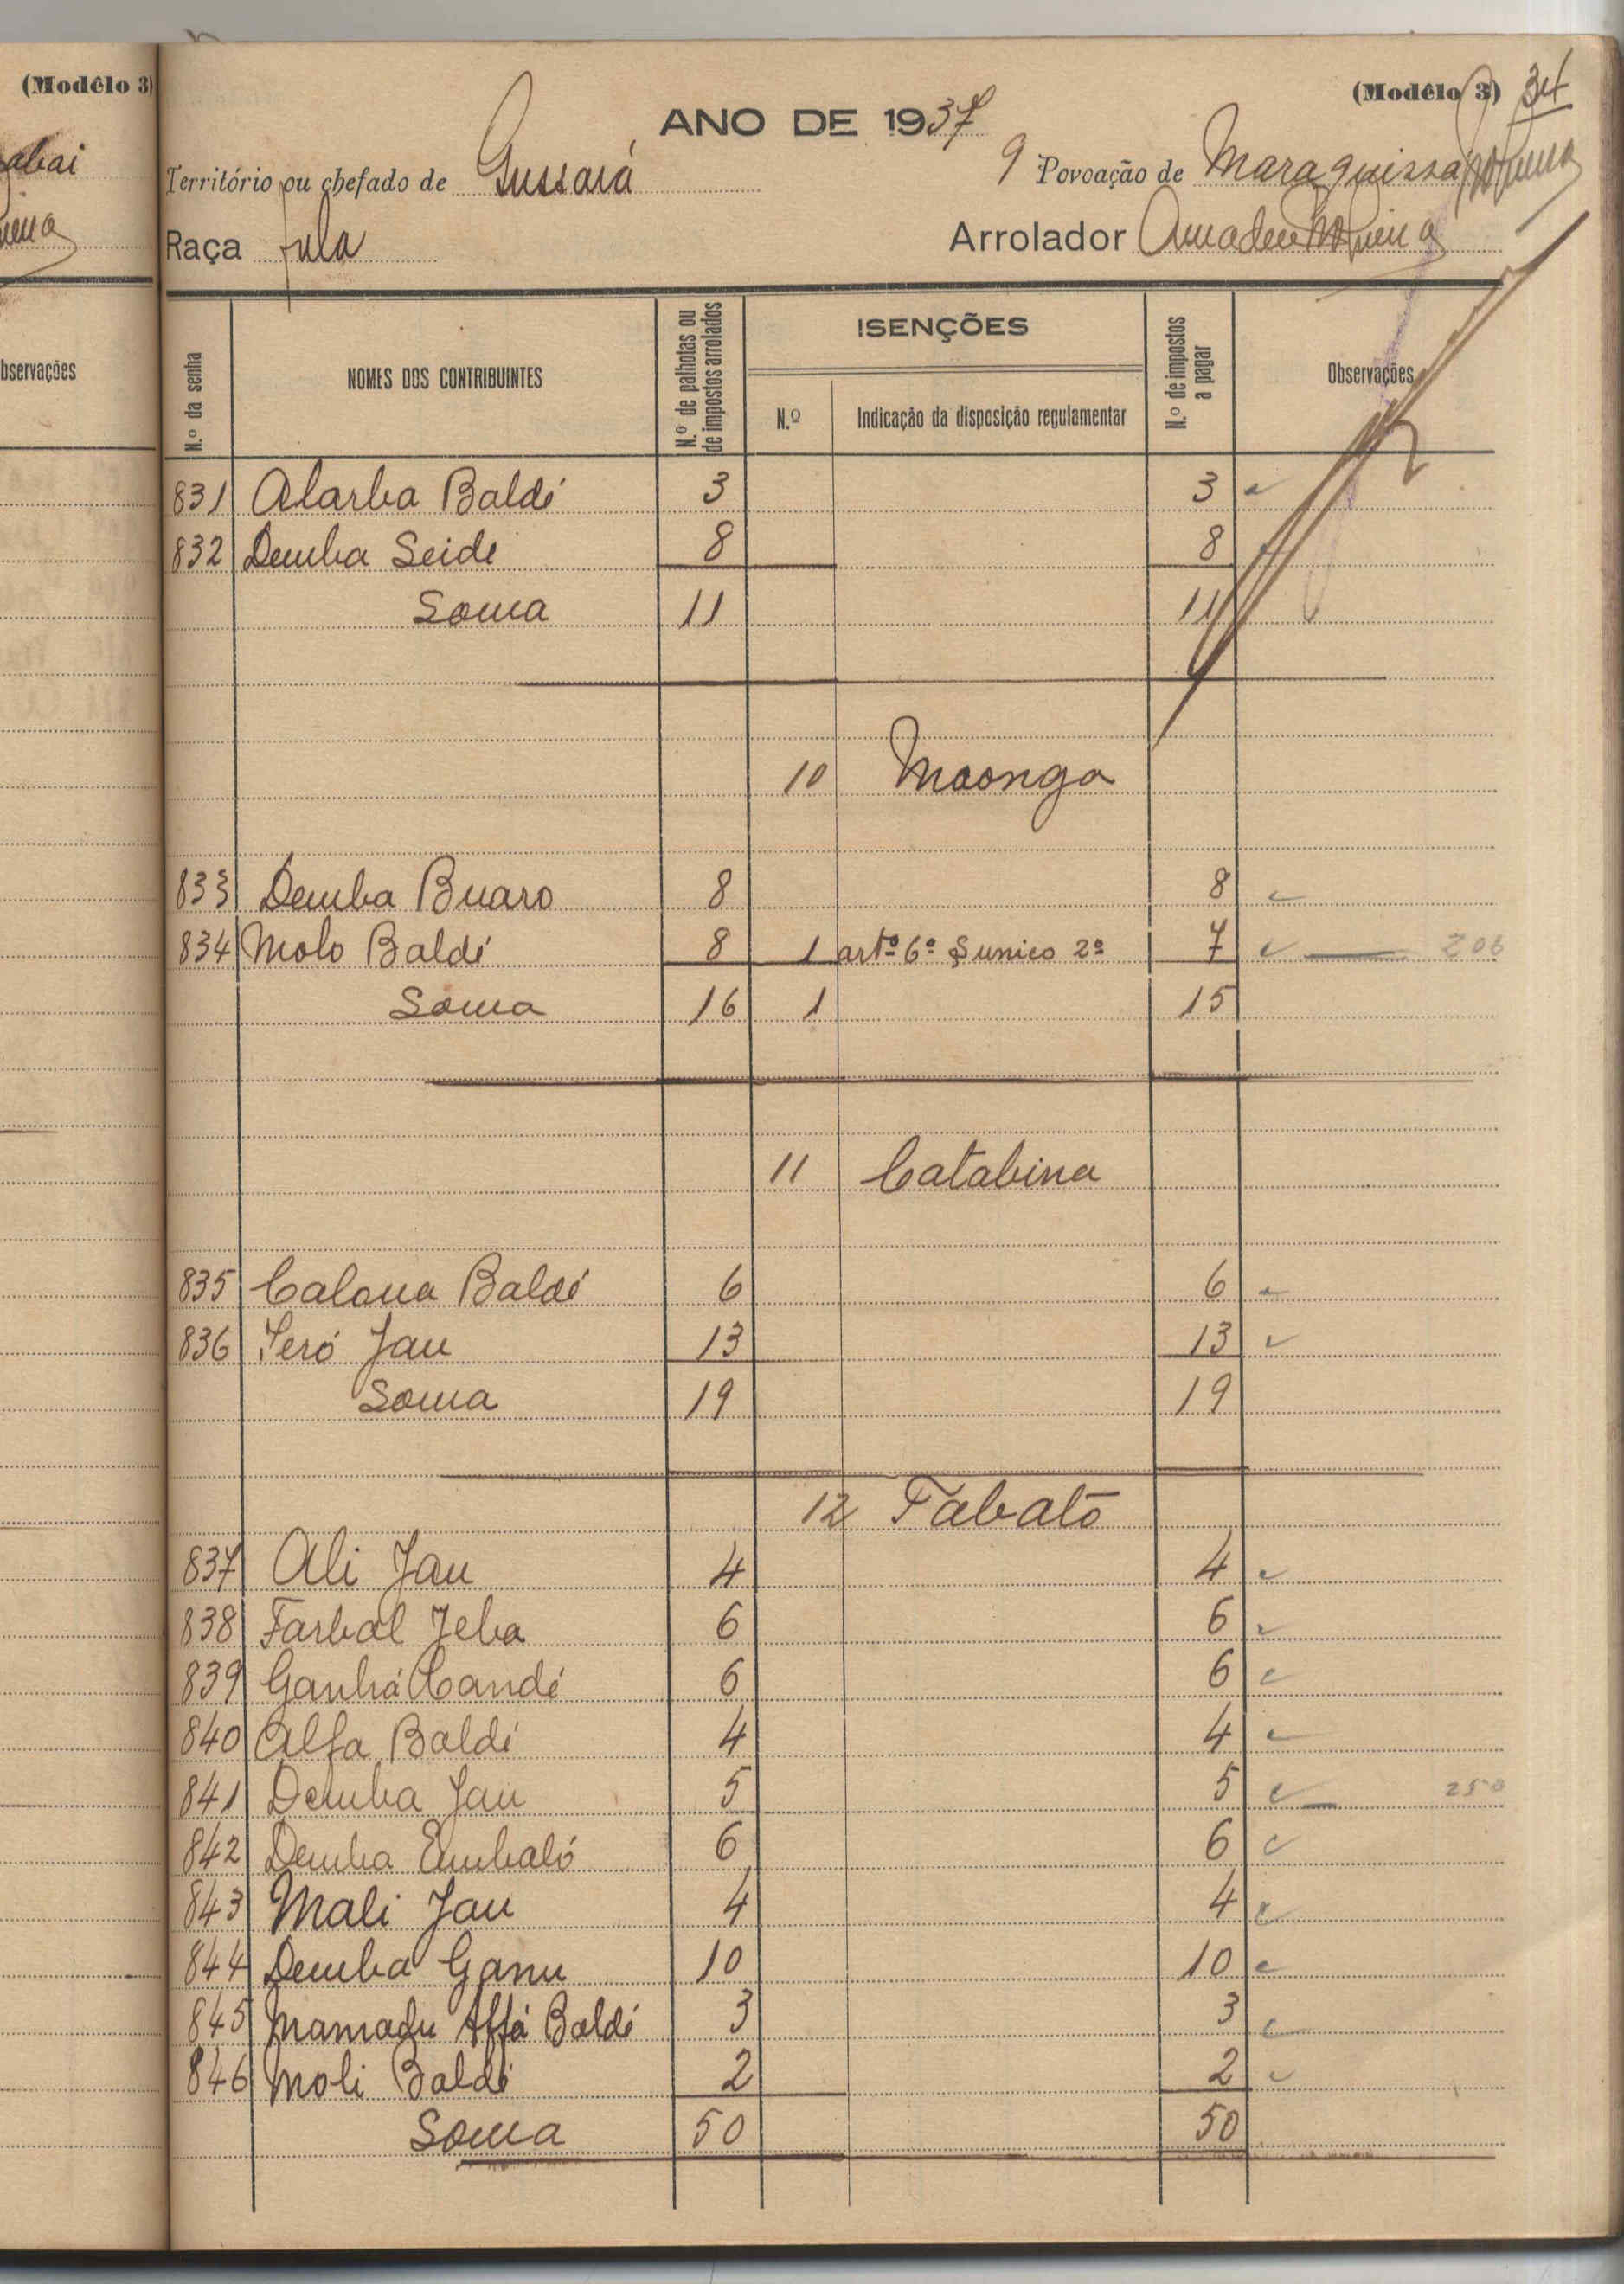 (Modêlo 3)
(Modêlo 3) 34
abai
ANO DE 1937
Território ou chefado de Gussará 9 Povoação de Maraquissa
Raça fula Arrolador Amadeu
bservações
N.º da senha NOMES DOS CONTRIBUINTES N.º de palhotas ou de impostos arrolados ISENÇÕES N.º Indicação da disposição regulamentar N.º de impostos a pagar Observações
831 Alarba Baldé 3 3
832 Demba Seide 8 8
Soma 11 11
10 Maonga
833 Demba Buaro 8 8
834 Molo Baldé 8 1 artº 6º § unico 2º 7 206
Soma 16 1 15
11 Catabina
835 Caloua Baldé 6 6
836 Seró Jau 13 13
Soma 19 19
12 Tabatō
837 Ali Jau 4 4
838 Farbal Jeba 6 6
839 Ganhá Candé 6 6
840 Alfa Baldé 4 4
841 Demba Jau 5 5 250
842 Demba Embaló 6 6
843 Mali Jau 4 4
844 Demba Ganu 10 10
845 Mamadu Alfá Baldé 3 3
846 Moli Baldé 2 2
Soma 50 50